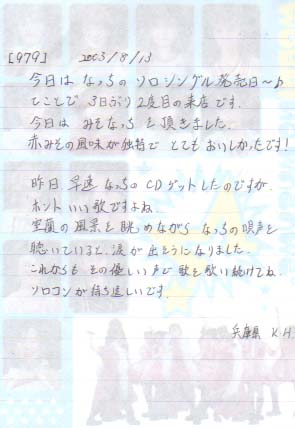 [979] 2003/8/13
今日は なっちの ソロシングル発売日〜♪
てことで 3日ぶり 2度目の来店です。
今日は みそなっち を頂きました。
赤みその風味が独特で とてもおいしかったです!
昨日、早速 なっちの CDゲットしたのですが、
ホント いい歌ですよね。
室蘭の風景を眺めながら なっちの唄声を
聴いていると、涙が出そうになりました。
これからも その優しい声で 歌を歌い続けてね。
ソロコンが待ち遠しいです。
兵庫県 K.H